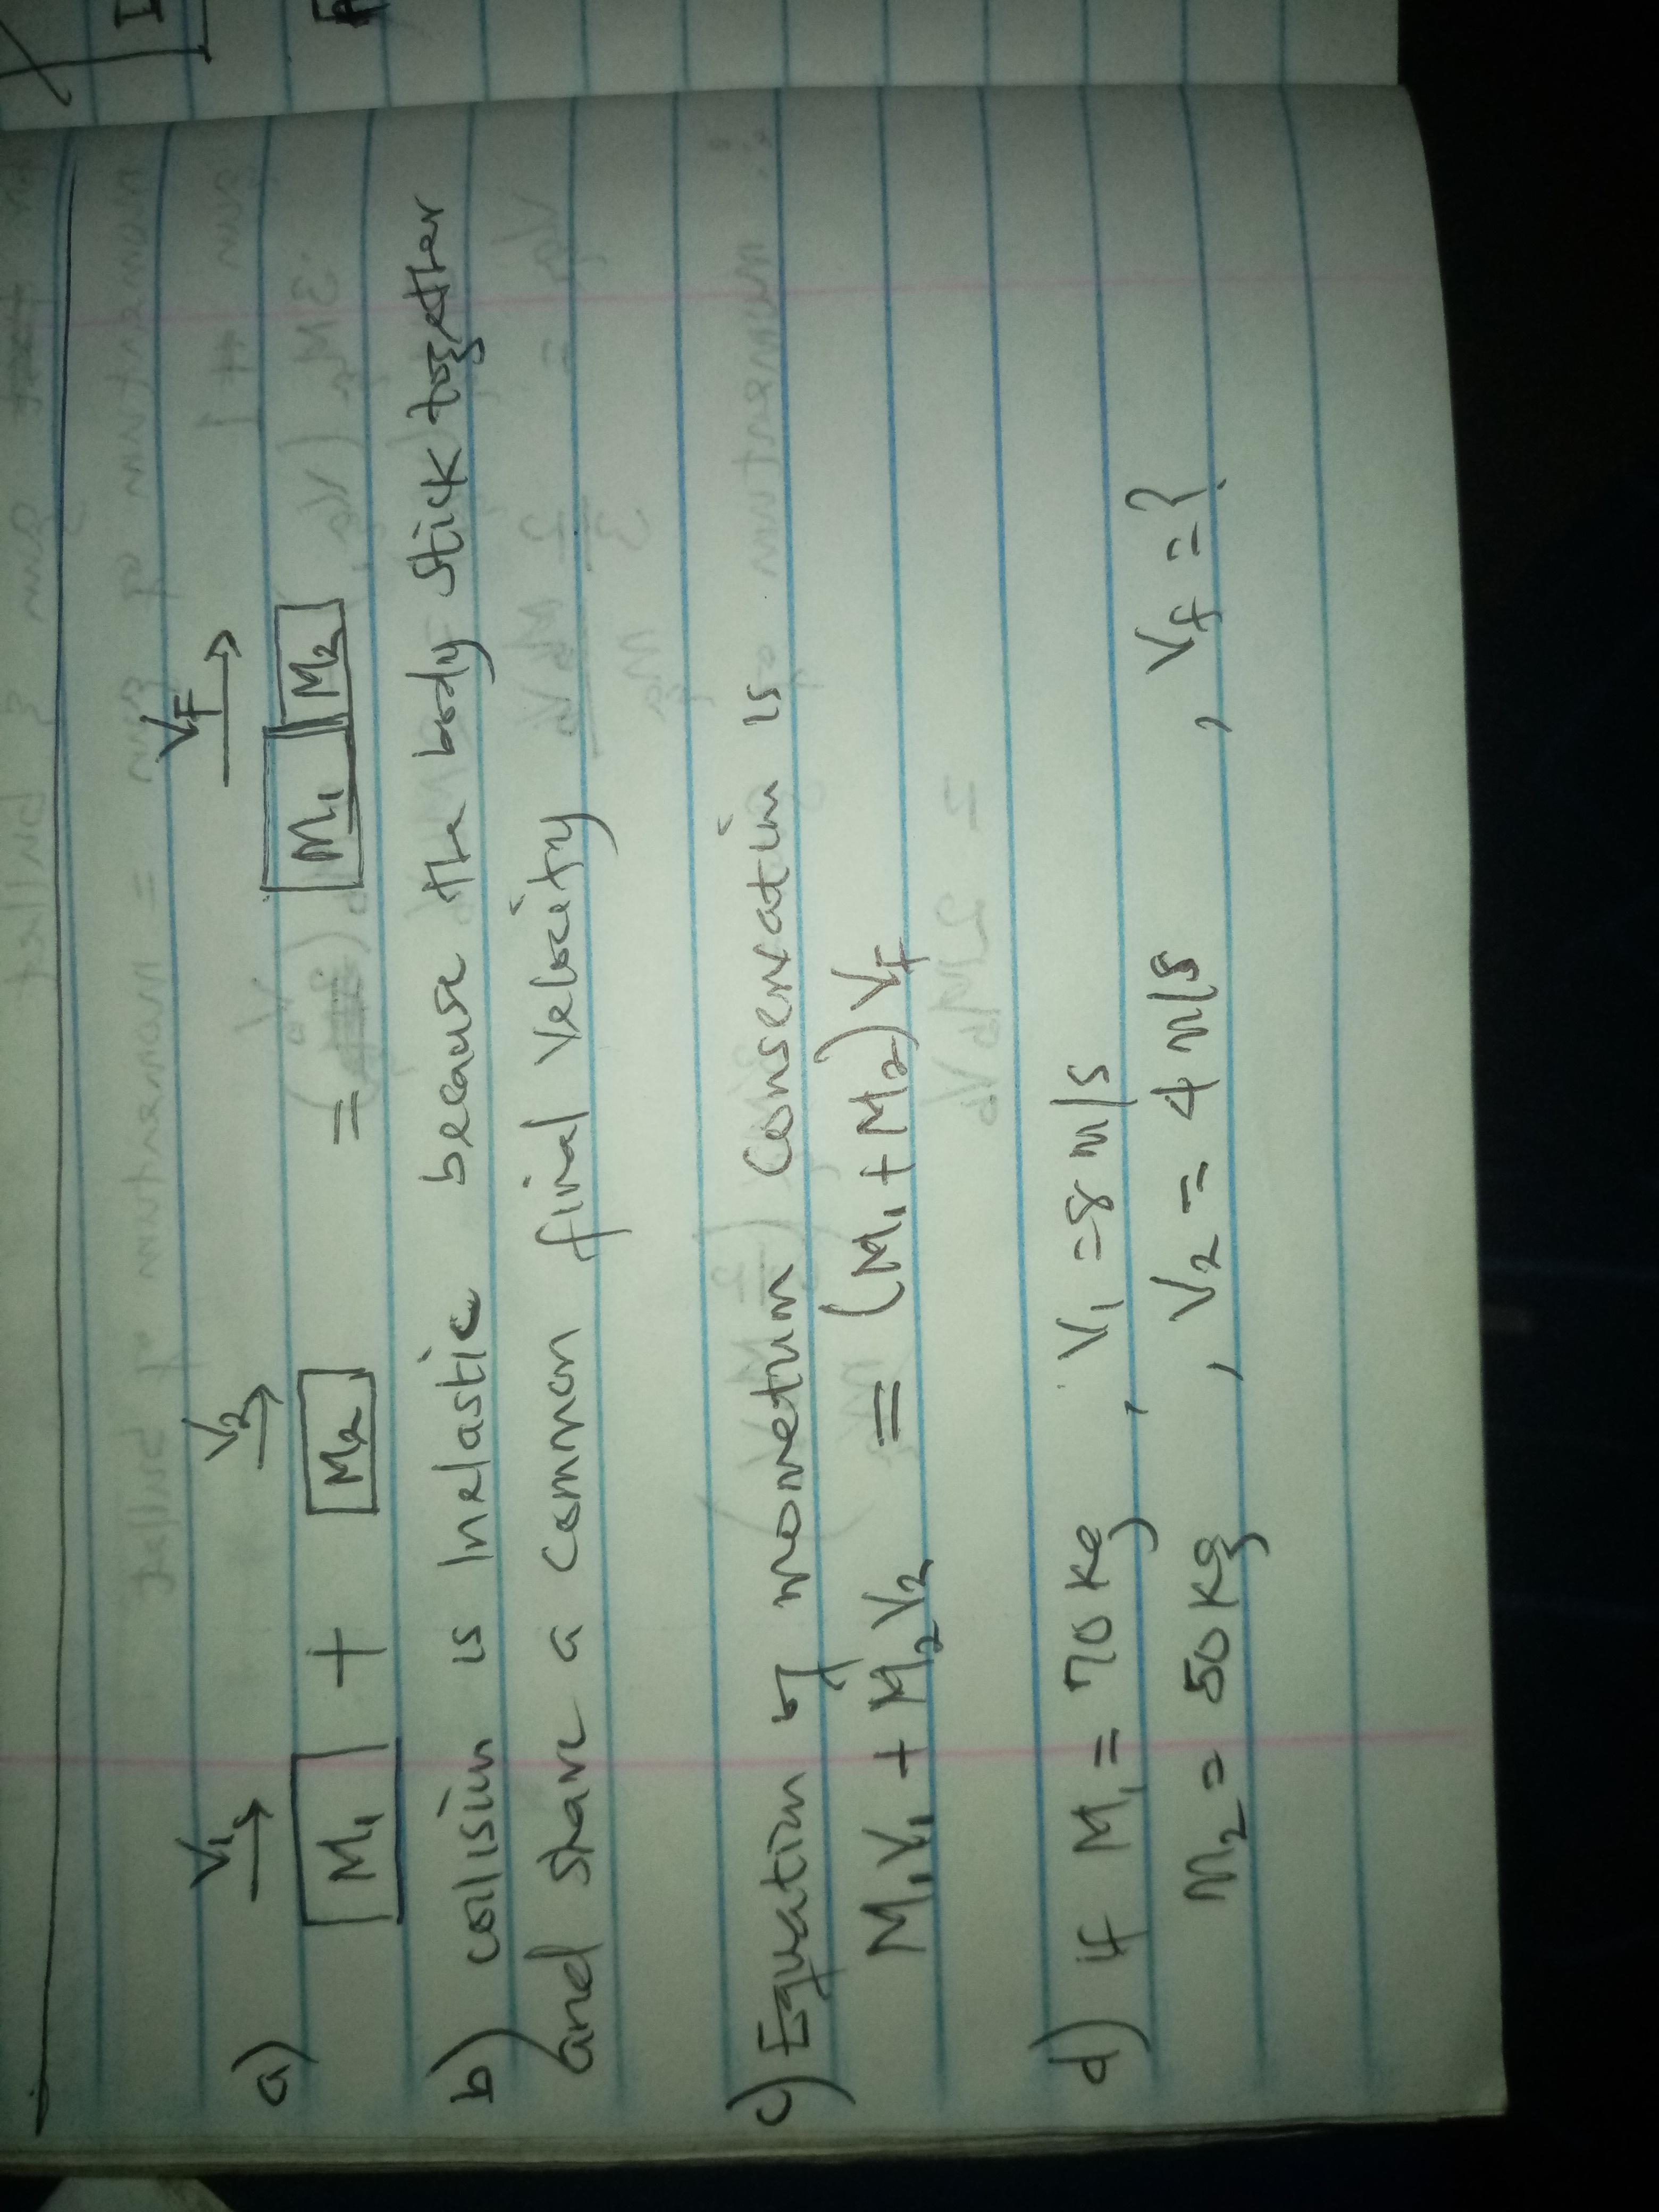 a) V₁ V₂ V_F
M₁ + M₂ = M₁ M₂
b) collision is Inelastic because the body stick together
and share a common final velocity
c) Equation of mometum Conservation is
M₁V₁ + M₂V₂ = (M₁ + M₂)V_F
d) if M₁ = 70 kg, V₁ = 8 m/s
M₂ = 50 kg, V₂ = 4 m/s, V_f = ?